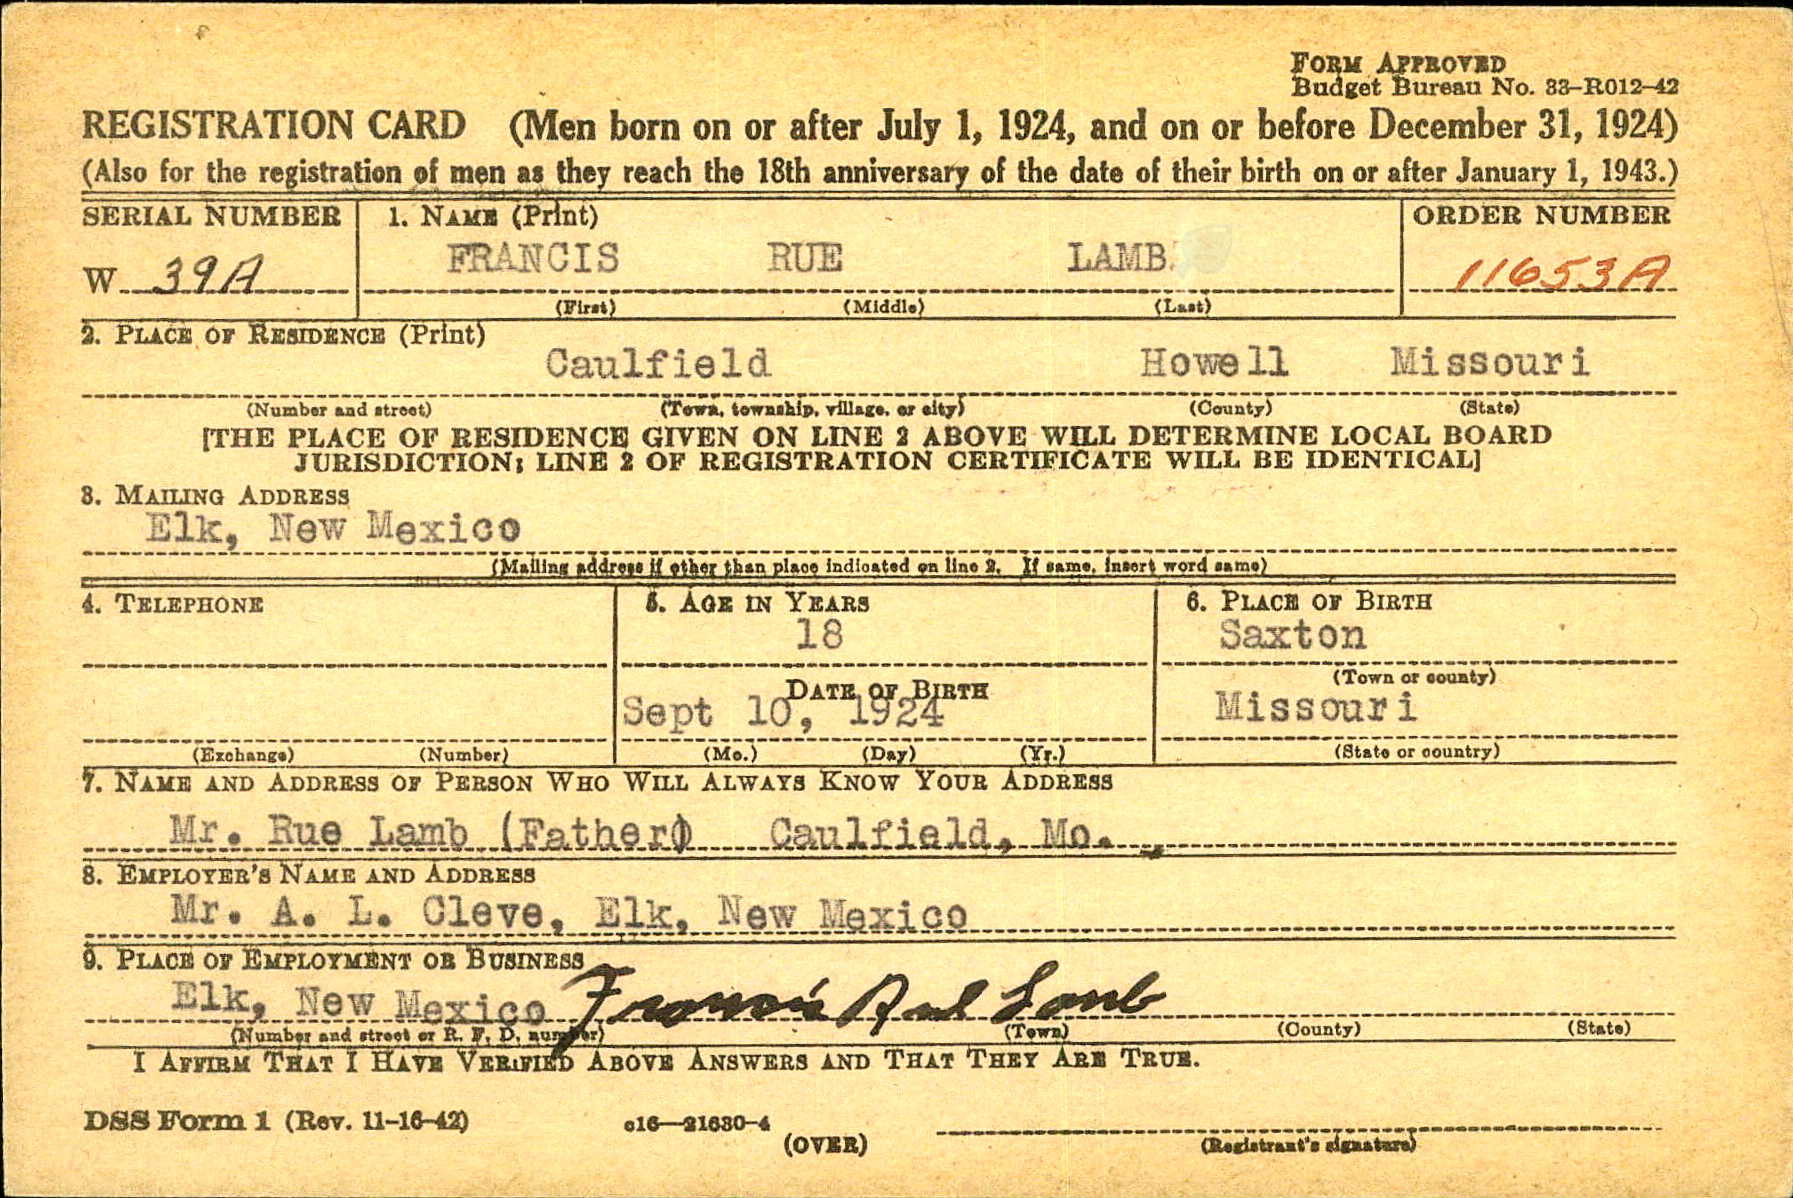 FORM APPROVED
Budget Bureau No. 33–R012–42
REGISTRATION CARD (Men born on or after July 1, 1924, and on or before December 31, 1924)
(Also for the registration of men as they reach the 18th anniversary of the date of their birth on or after January 1, 1943.)
SERIAL NUMBER 1. NAME (Print) ORDER NUMBER
W 39A FRANCIS RUE LAMB 11653A
(First) (Middle) (Last)
2. PLACE OF RESIDENCE (Print)
Caulfield Howell Missouri
(Number and street) (Town, township, village, or city) (County) (State)
[THE PLACE OF RESIDENCE GIVEN ON LINE 2 ABOVE WILL DETERMINE LOCAL BOARD
JURISDICTION; LINE 2 OF REGISTRATION CERTIFICATE WILL BE IDENTICAL]
3. MAILING ADDRESS
Elk, New Mexico
(Mailing address if other than place indicated on line 2. If same, insert word same)
4. TELEPHONE 5. AGE IN YEARS 6. PLACE OF BIRTH
18 Saxton
(Town or county)
DATE OF BIRTH
Sept 10, 1924 Missouri
(Exchange) (Number) (Mo.) (Day) (Yr.) (State or country)
7. NAME AND ADDRESS OF PERSON WHO WILL ALWAYS KNOW YOUR ADDRESS
Mr. Rue Lamb (Father) Caulfield, Mo.
8. EMPLOYER'S NAME AND ADDRESS
Mr. A. L. Cleve, Elk, New Mexico
9. PLACE OF EMPLOYMENT OR BUSINESS
Elk, New Mexico Francis Rue Lamb
(Number and street or R. F. D. number) (Town) (County) (State)
I AFFIRM THAT I HAVE VERIFIED ABOVE ANSWERS AND THAT THEY ARE TRUE.
DSS Form 1 (Rev. 11–16–42) c16—21630–4
(OVER) (Registrant's signature)